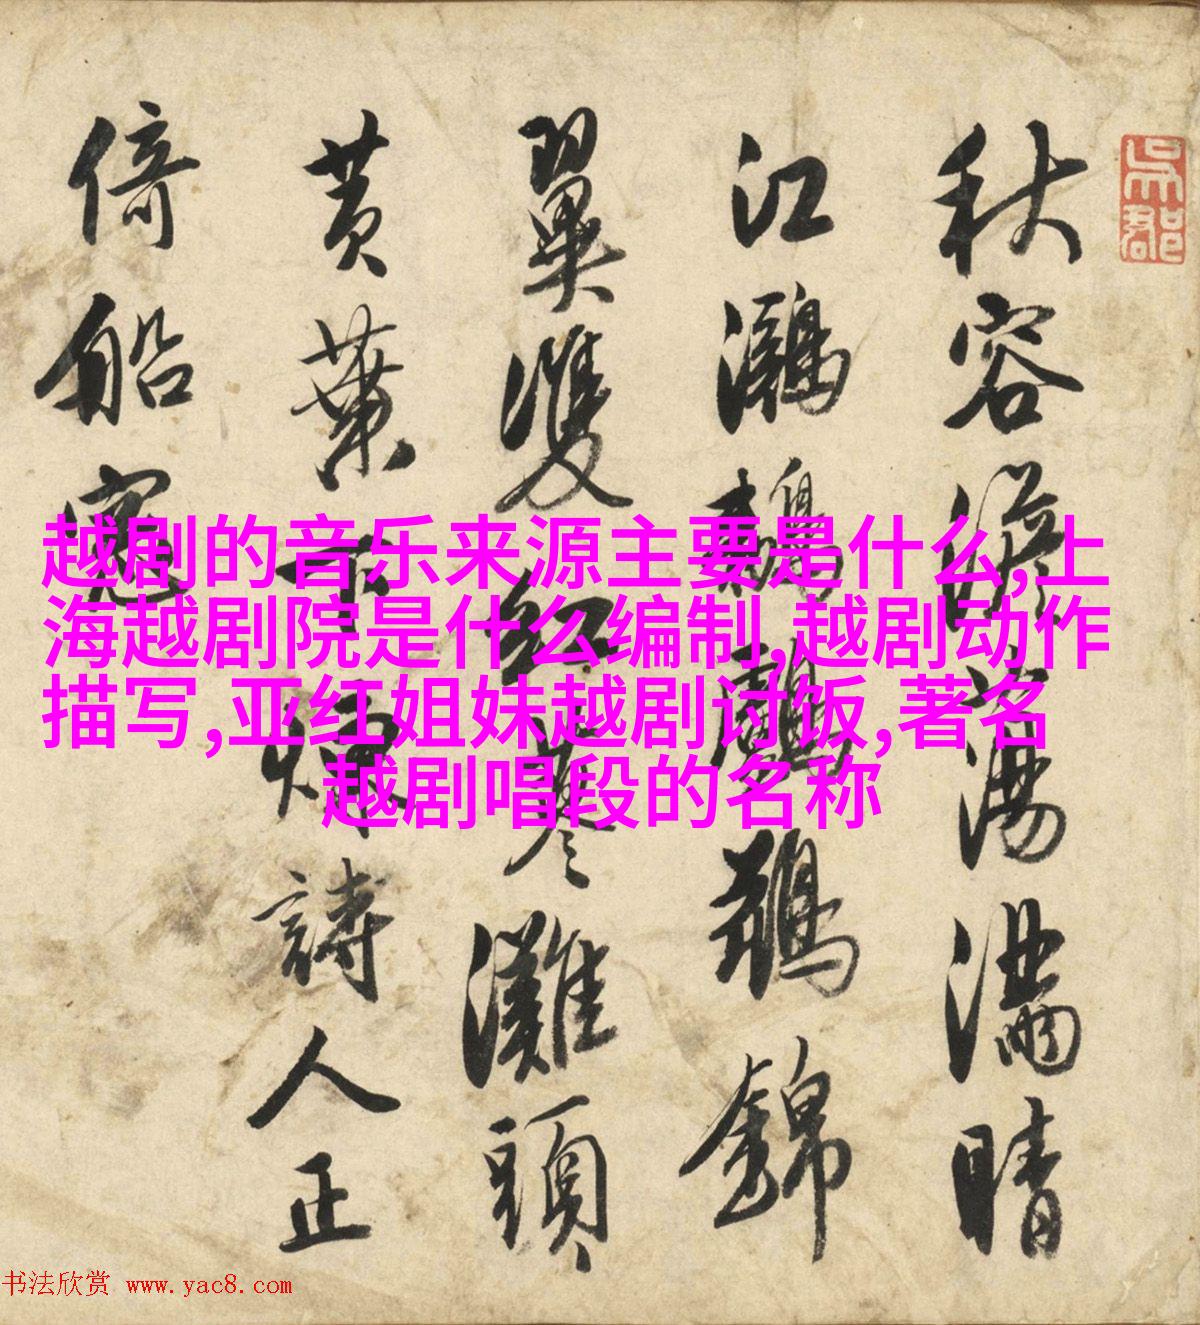 吳郡
秋容澹蕩滿晴
江鸂鶒鸕鶿錦
翼雙紅蓼灘頭
黄葉下詩人正
倚船窓
越剧的音乐来源主要是什么,上
海越剧院是什么编制,越剧动作
描写,亚红姐妹越剧讨饭,著名
越剧唱段的名称
书法欣赏 www.yac8.com